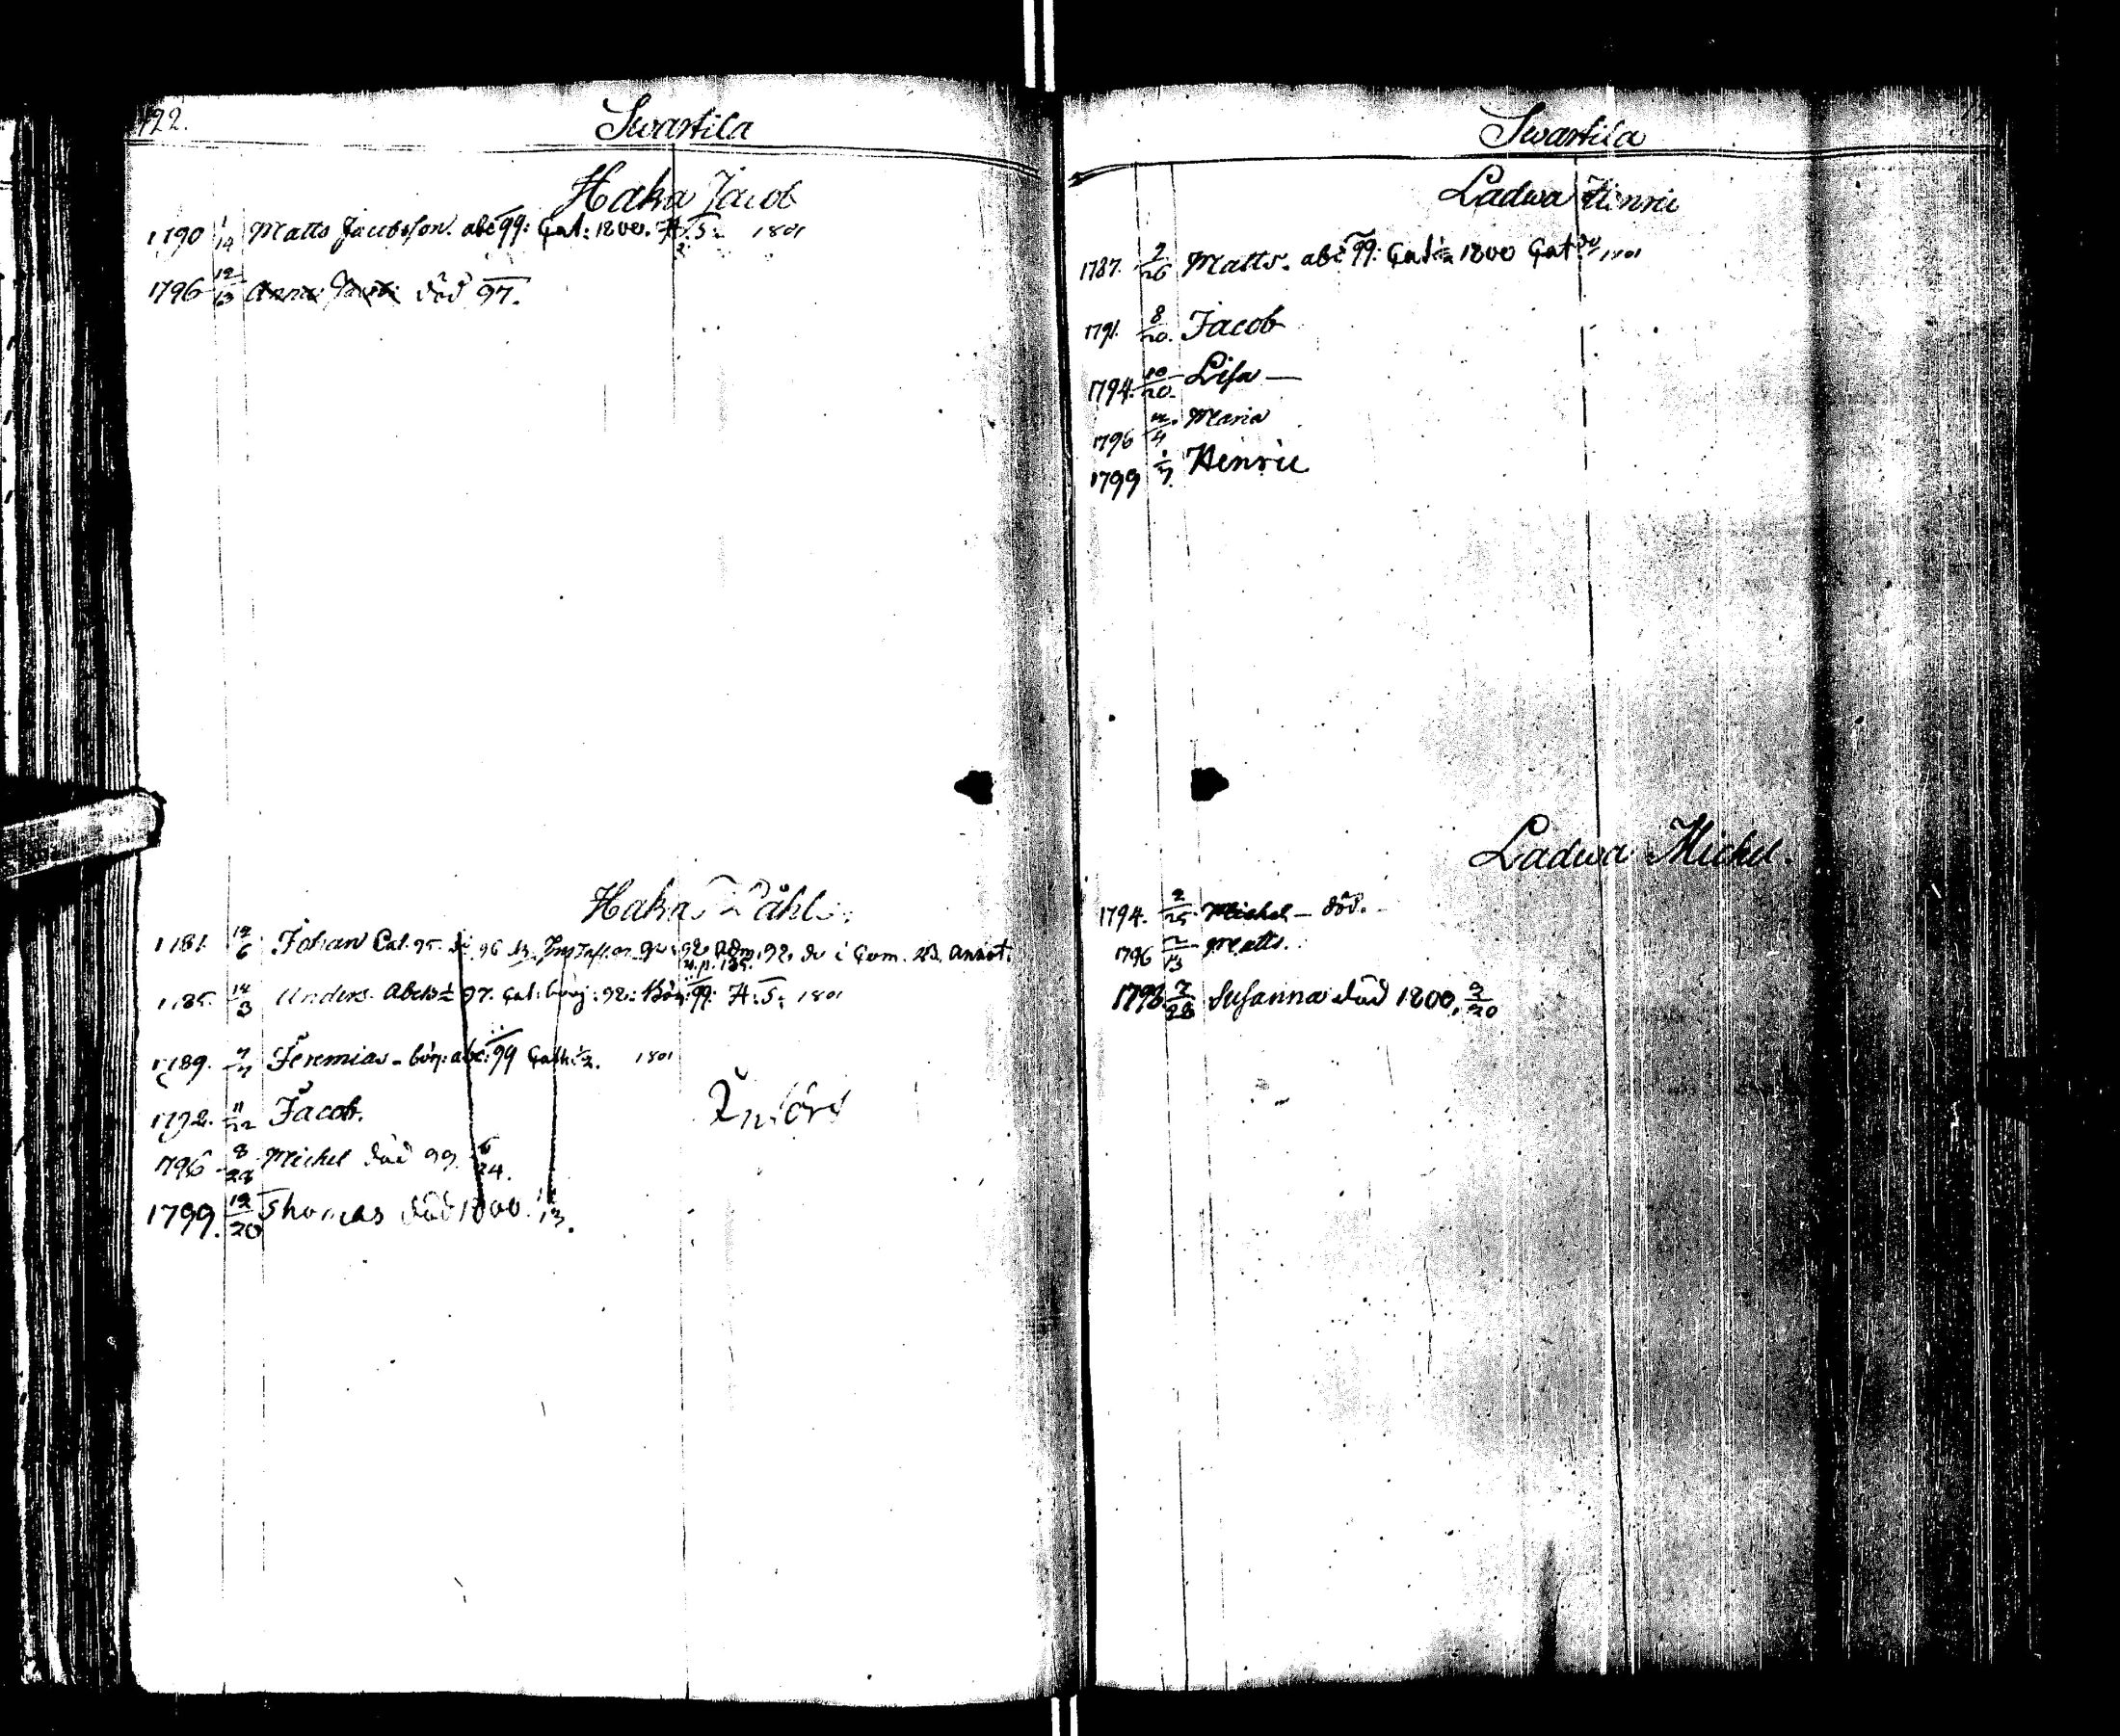 122.
Swartila
Haka Jacob
1790 1/14 Matts Jacobsson. abc 99: Cat: 1800. H: S: 1801
1796 12/13 Anna död 97.
Haka Påhl
1781. 12/6 Johan Cat. 95. 96 92. i annot.
1785. 12/3 Anders. Abc 97. Cat: börj: 98: Bön: 99: H: S: 1801
1789. 7/7 Jeremias - bön: abc: 99 Cath: 1/2. 1801
1792. 11/22 Jacob. Införd
1796 8/28 Michel död 99. 24.
1799. 12/20 Thomas död 1800. 13.
Swartila
Ladwa Hinric
1787. 2/26 Matts. abc 99: Cat: 1/2 1800 Cat 1801
1791. 8/20. Jacob
1794. 10/20. Lisa —
1796 4 Maria
1799 1/7. Henric
Ladwa Michel.
1794. 2/25 Michel — död.
1796 2/13 Matts.
1798 2/28 Susanna död 1800. 2/20